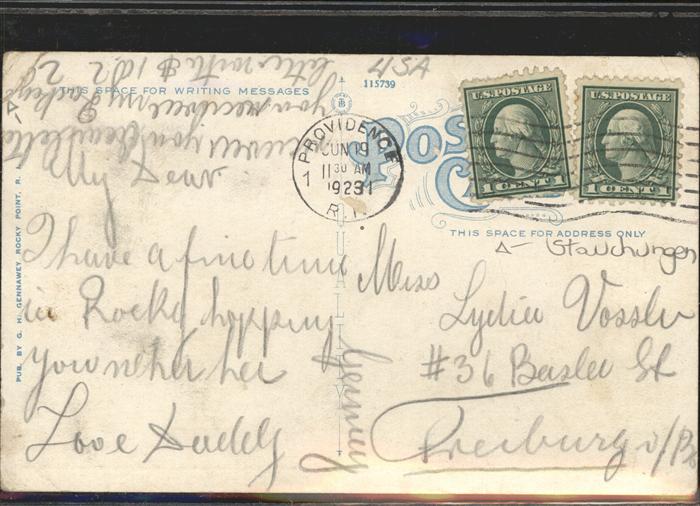 USA
115739
THIS SPACE FOR WRITING MESSAGES
POST CARD
PROVIDENCE
JUN 19
11 30 AM
1923
1
1
R.I.
U.S. POSTAGE
1 CENT 1
U.S. POSTAGE
1 CENT 1
THIS SPACE FOR ADDRESS ONLY
Stauchungen
PUB. BY G. H. GENNAWEY, ROCKY POINT, R.
My Dear
I have a fine time
in Rocky hopping
you
Love Daddy
Miss
Lydia Vossler
#36 Basler St
Freiburg i/Br
Germany
letter with $ 1 a 2